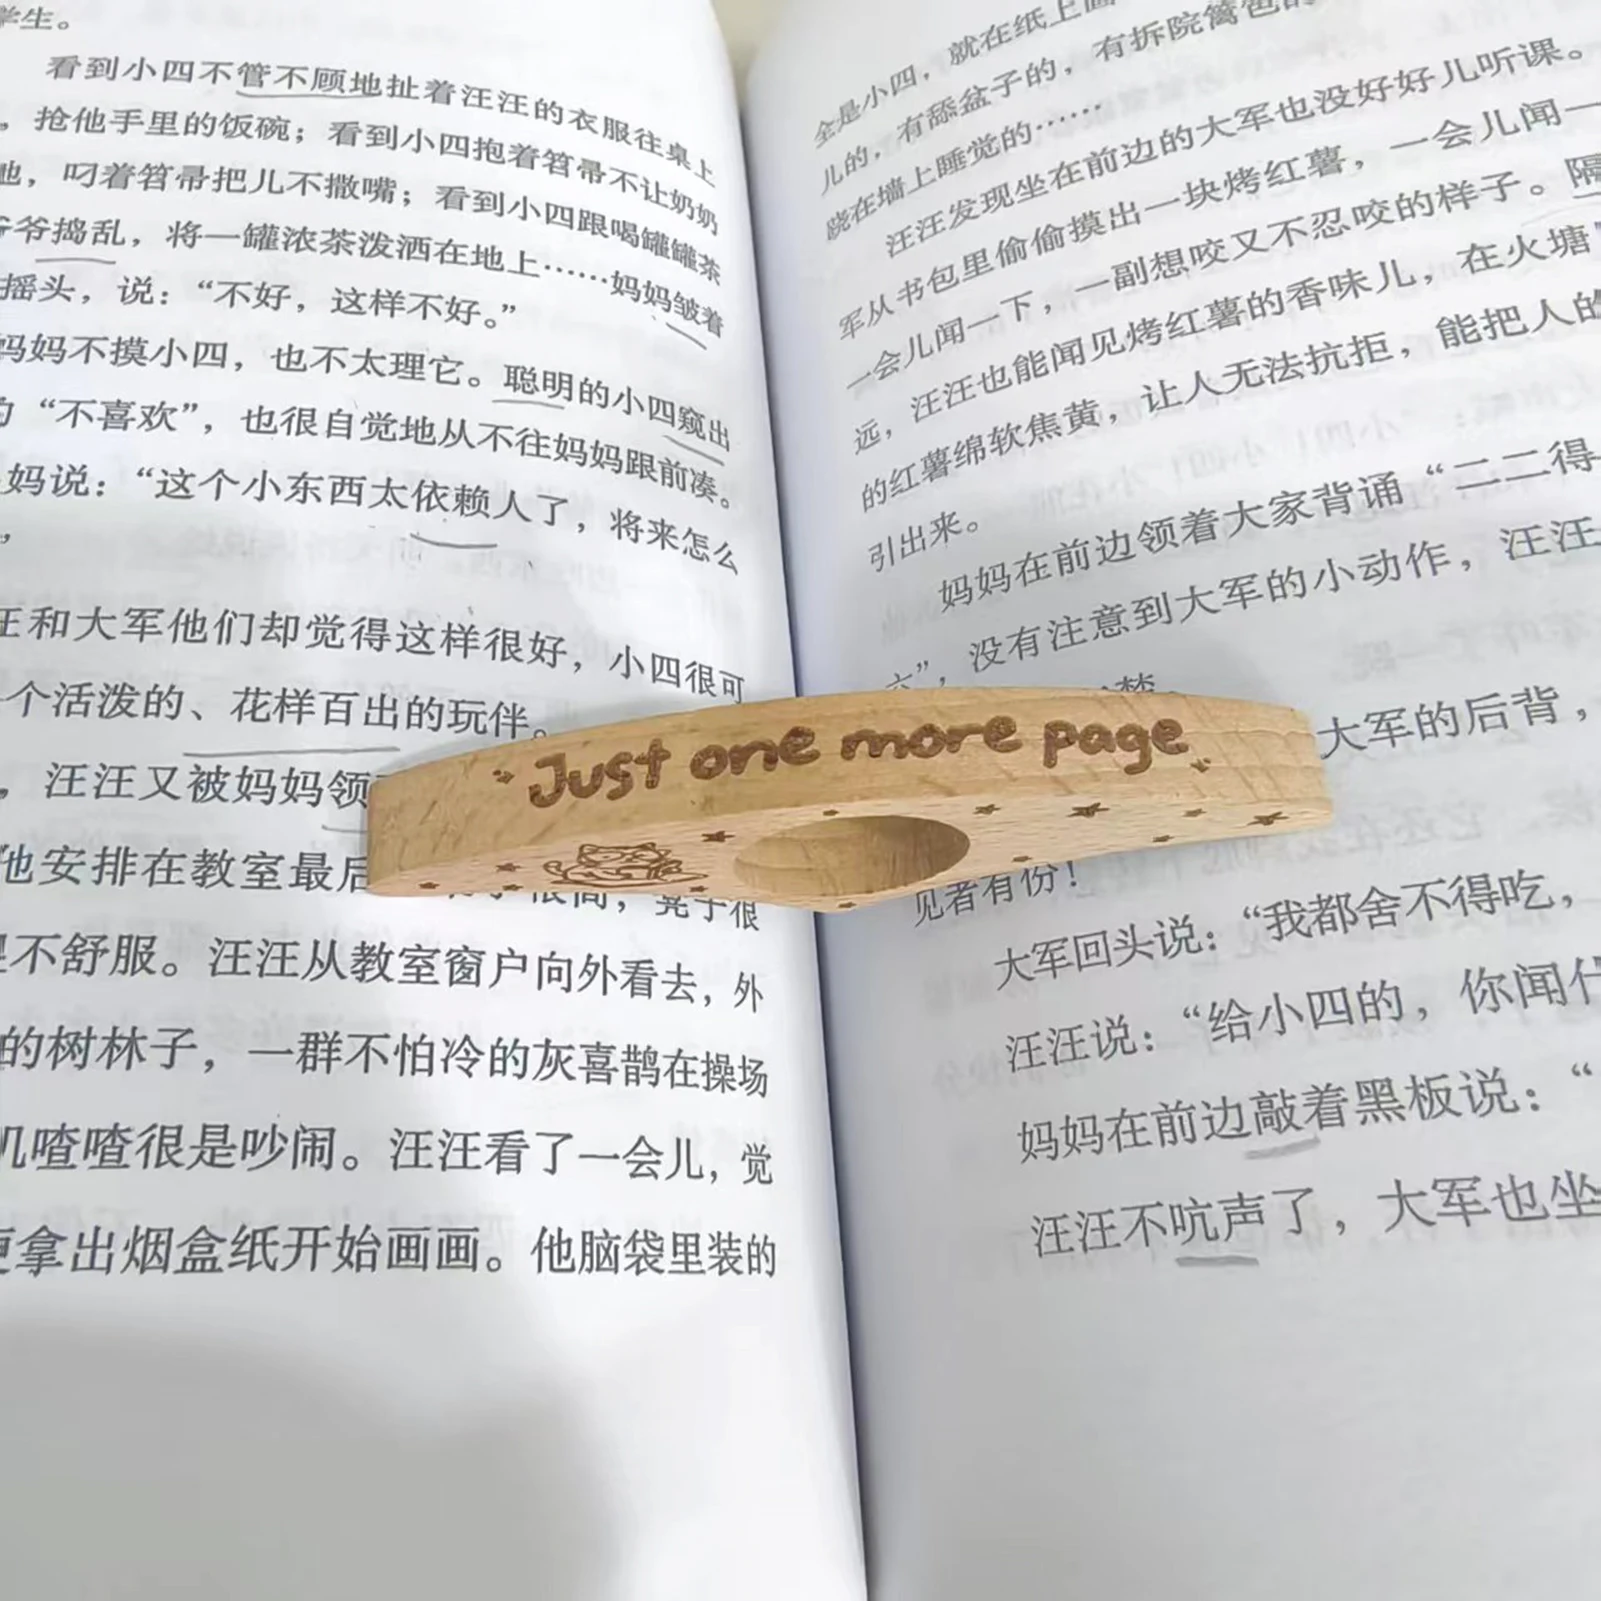 学生。
看到小四不管不顾地扯着汪汪的衣服往桌上
，抢他手里的饭碗；看到小四抱着笤帚不让奶奶
地，叼着笤帚把儿不撒嘴；看到小四跟喝罐罐茶
爷爷捣乱，将一罐浓茶泼洒在地上……妈妈皱着
摇头，说：“不好，这样不好。”
妈妈不摸小四，也不太理它。聪明的小四窥出
的“不喜欢”，也很自觉地从不往妈妈跟前凑。
妈说：“这个小东西太依赖人了，将来怎么
”
汪和大军他们却觉得这样很好，小四很可
个活泼的、花样百出的玩伴。
，汪汪又被妈妈领
他安排在教室最后
凳子很
不舒服。汪汪从教室窗户向外看去，外
的树林子，一群不怕冷的灰喜鹊在操场
叽喳喳很是吵闹。汪汪看了一会儿，觉
更拿出烟盒纸开始画画。他脑袋里装的
全是小四，就在纸上画
儿的，有舔盆子的，有拆院篱笆的
跷在墙上睡觉的……
汪汪发现坐在前边的大军也没好好儿听课。
军从书包里偷偷摸出一块烤红薯，一会儿闻一
一会儿闻一下，一副想咬又不忍咬的样子。隔
远，汪汪也能闻见烤红薯的香味儿，在火塘
的红薯绵软焦黄，让人无法抗拒，能把人的
引出来。
妈妈在前边领着大家背诵“二二得
六”，没有注意到大军的小动作，汪汪
大军的后背，
见者有份！
大军回头说：“我都舍不得吃，
汪汪说：“给小四的，你闻什
妈妈在前边敲着黑板说：“
汪汪不吭声了，大军也坐
Just one more page